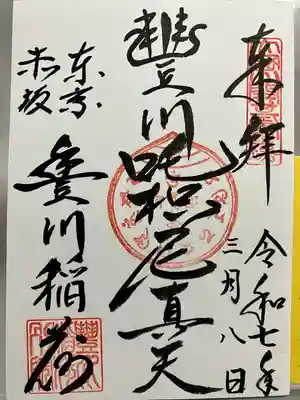 奉拝
令和七年
三月八日
豊川吒枳尼真天
東京
赤坂
豊川稲荷